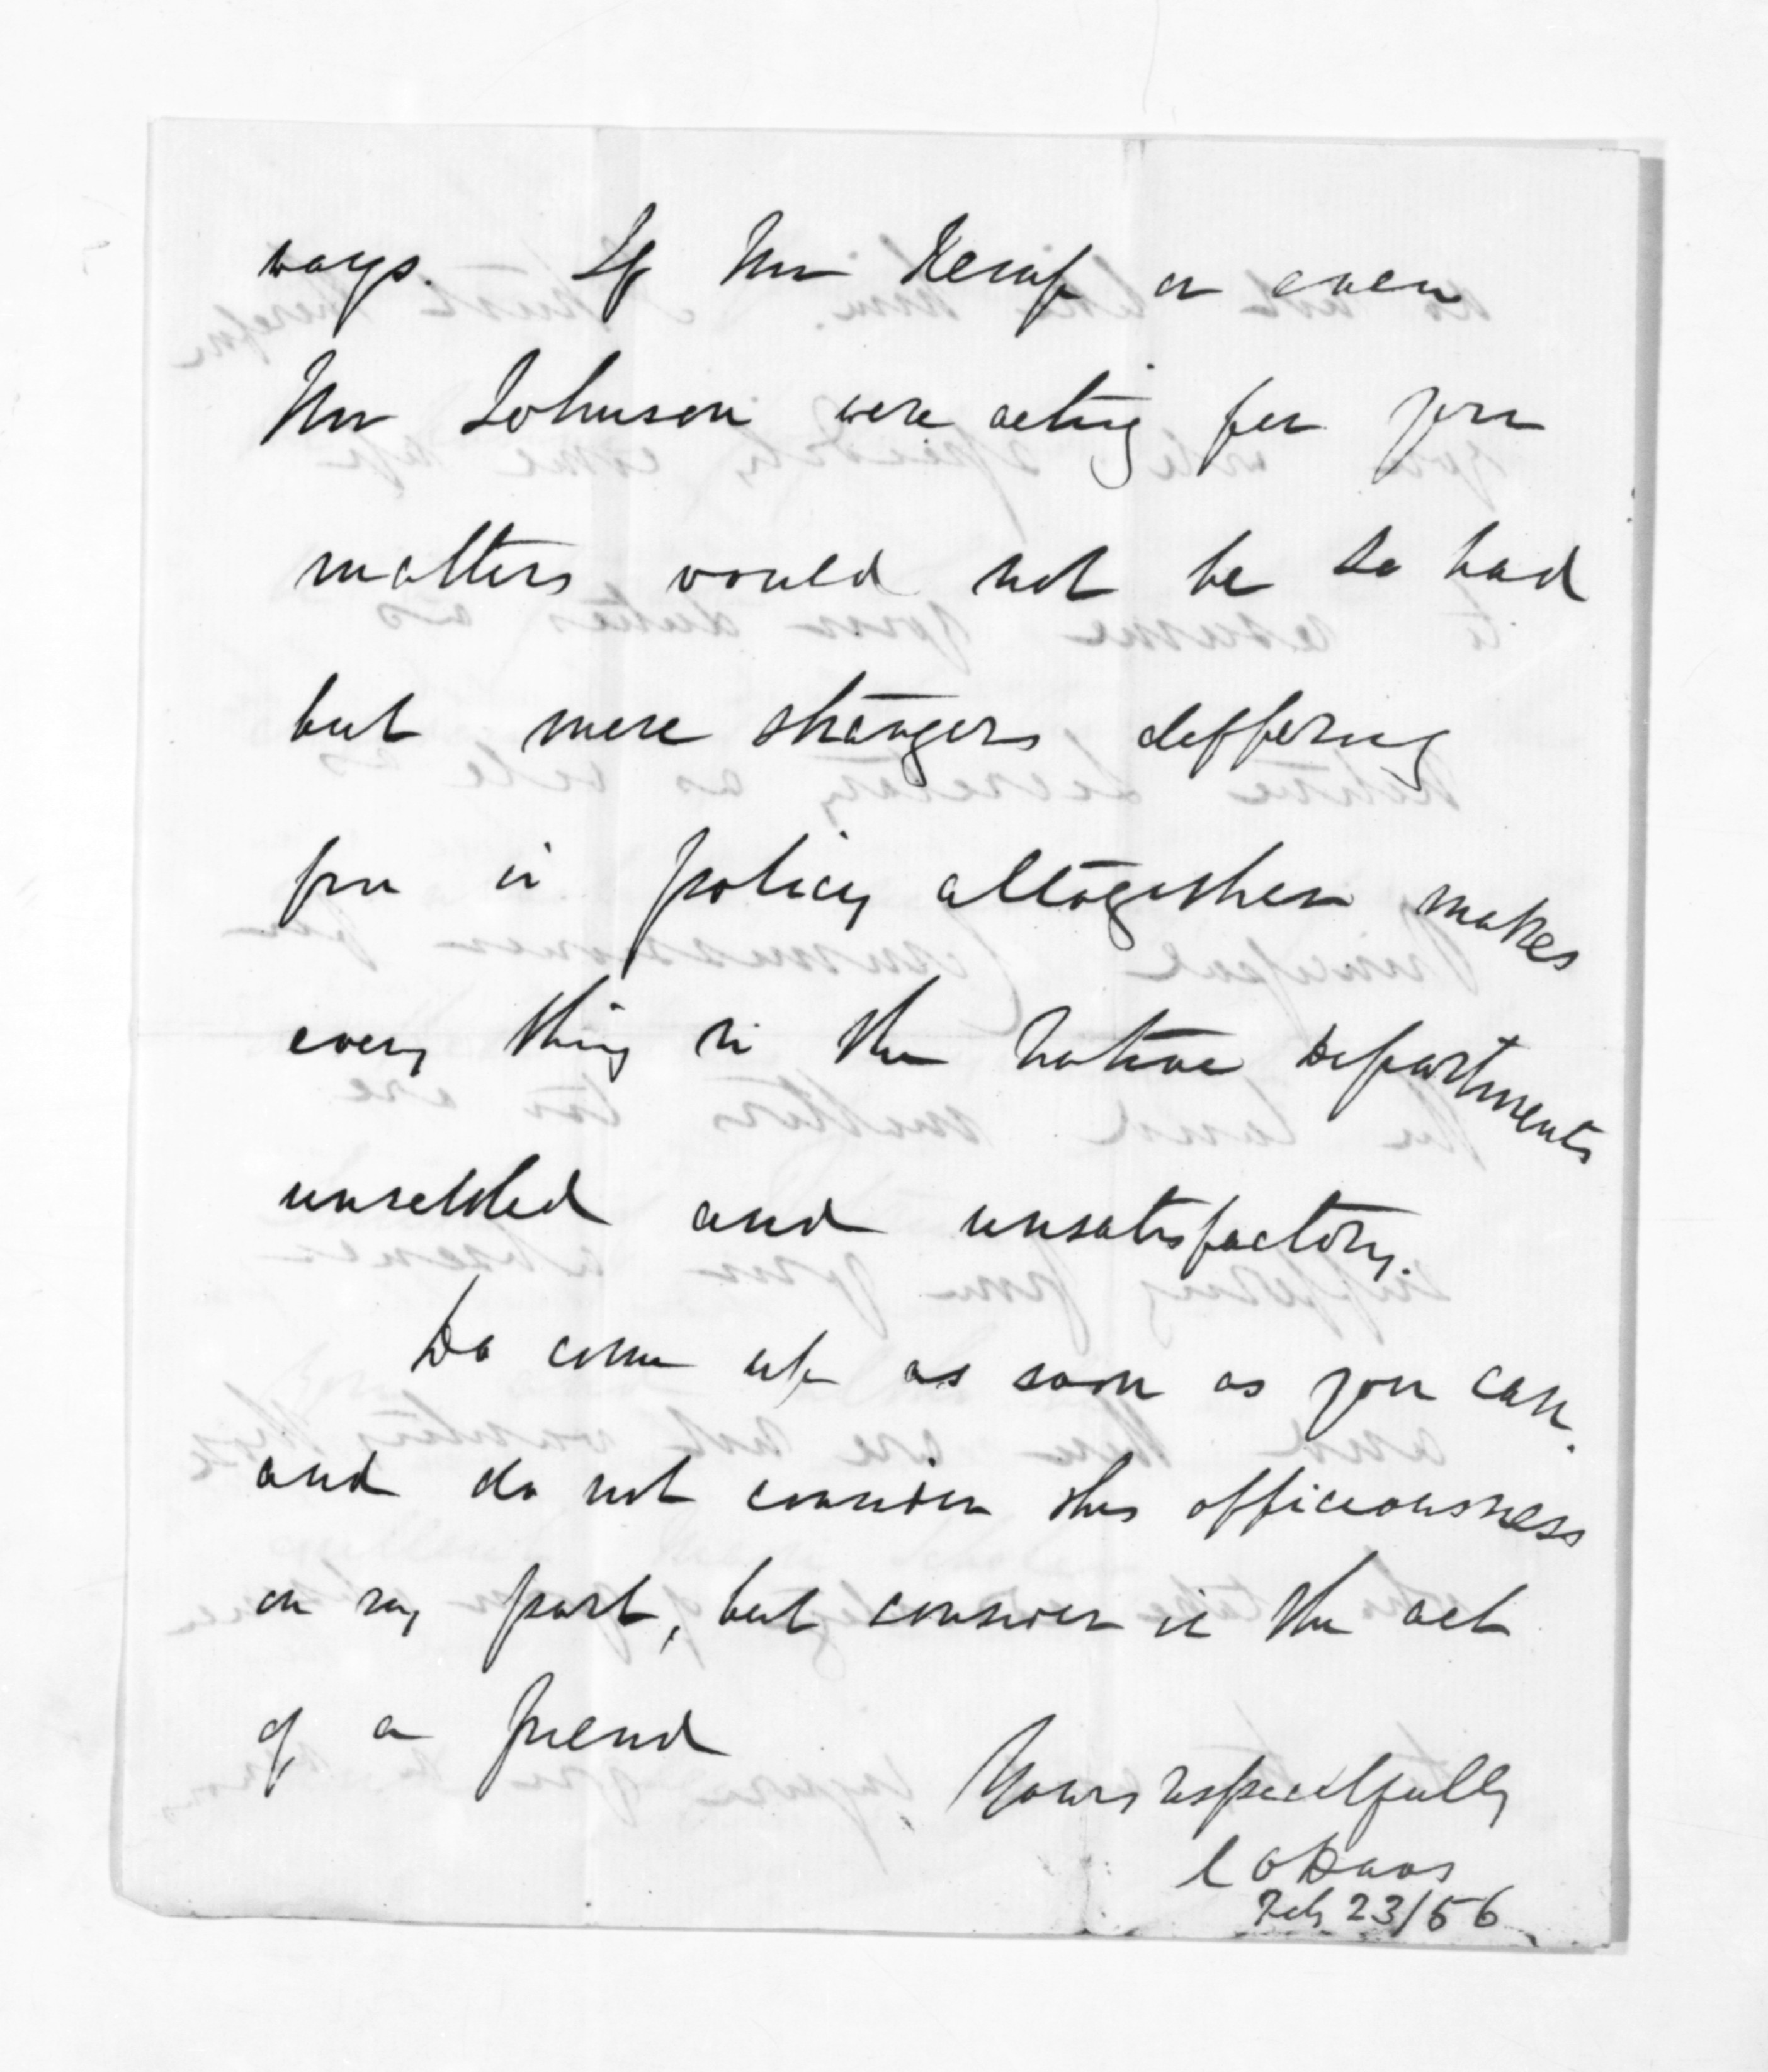 ways. If Mr Kemp or even
Mr Johnson were acting for you
matters would not be so bad
but mere strangers differing
from in policy altogether makes
every thing in the Native Departments
unsettled and unsatisfactory.
Do come up as soon as you can.
and do not consider this officiousness
on my part, but consider it the act
of a friend
Yours respectfully
C O Davis
Feb 23/56